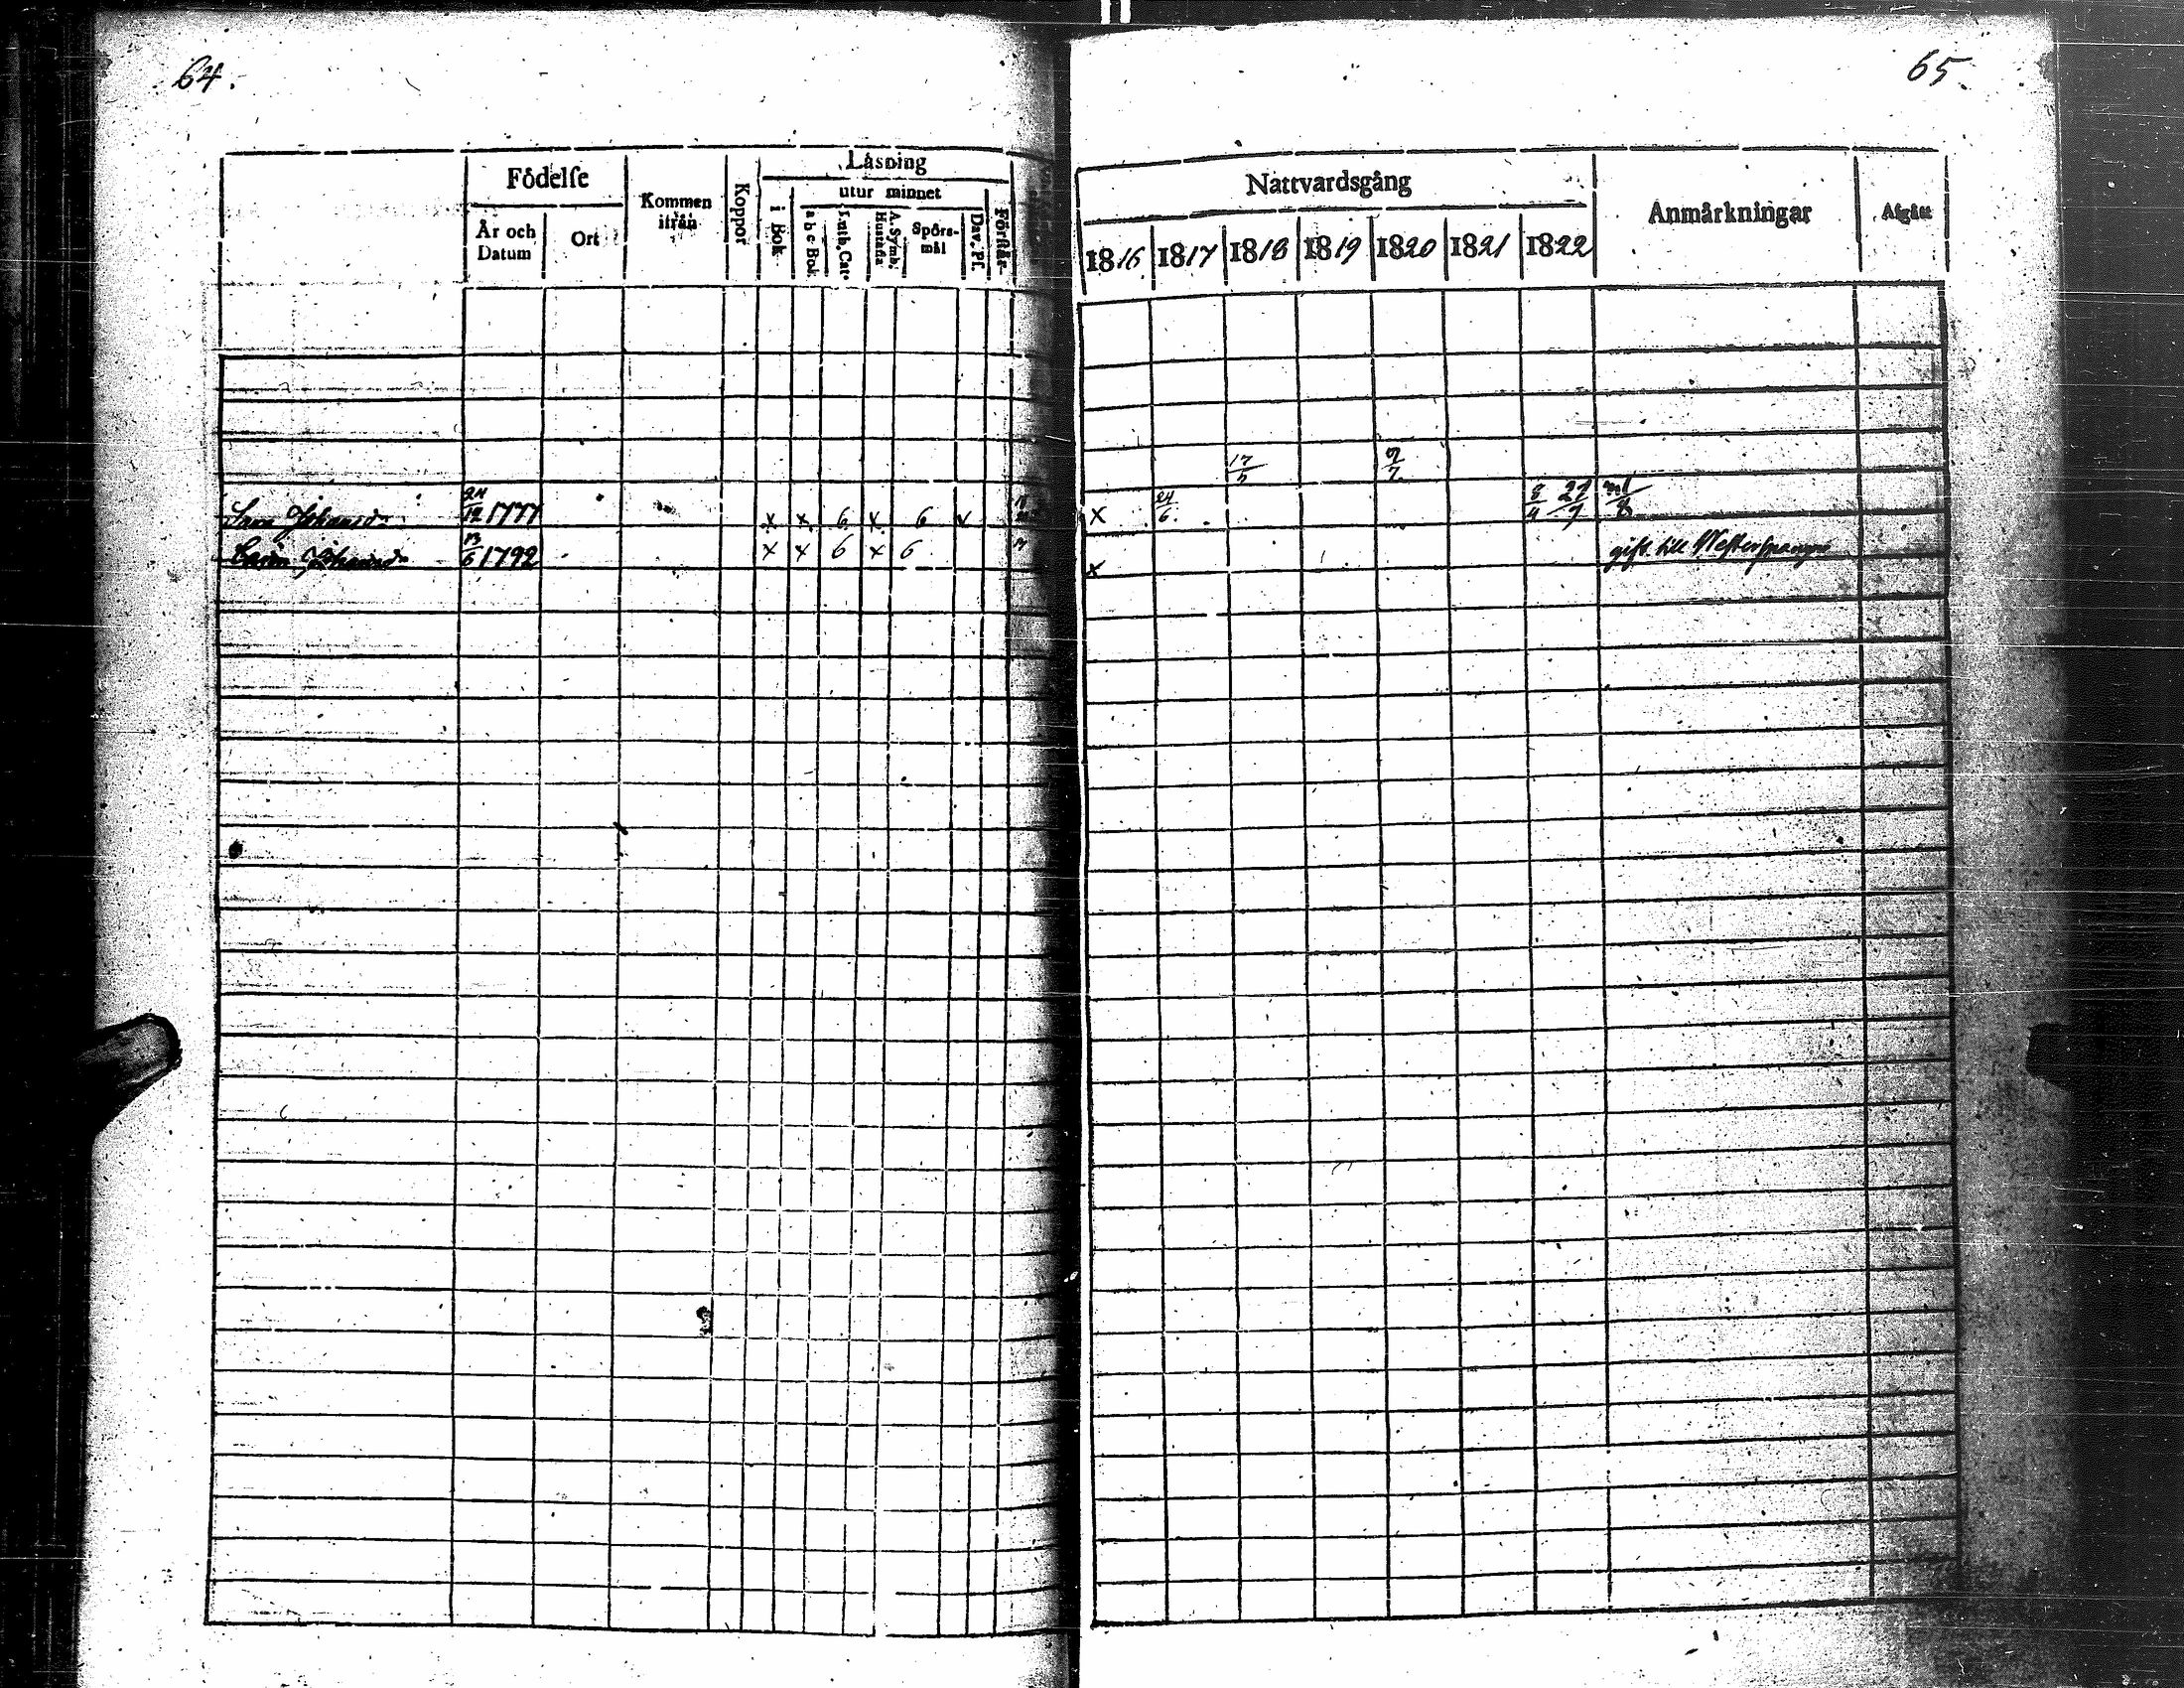 64.
Födelse
År och Datum
Ort
Kommen ifrån
Koppor
Läsning
i Bok
utur minnet
a b c Bok
Luth. Cat.
A. Symb. Hustafla
Spörs-mål
Dav. Ps.
Förstår
Sara Johansdr 24/12 1777 x x 6 x 6 x
Carin Johansdr 13/6 1792 x x 6 x 6
65.
Nattvardsgång
1816 1817 1818 1819 1820 1821 1822
Anmärkningar
Afgått
17/5 2/7
x 24/6 8/4 27/9
x gift till Westerspange